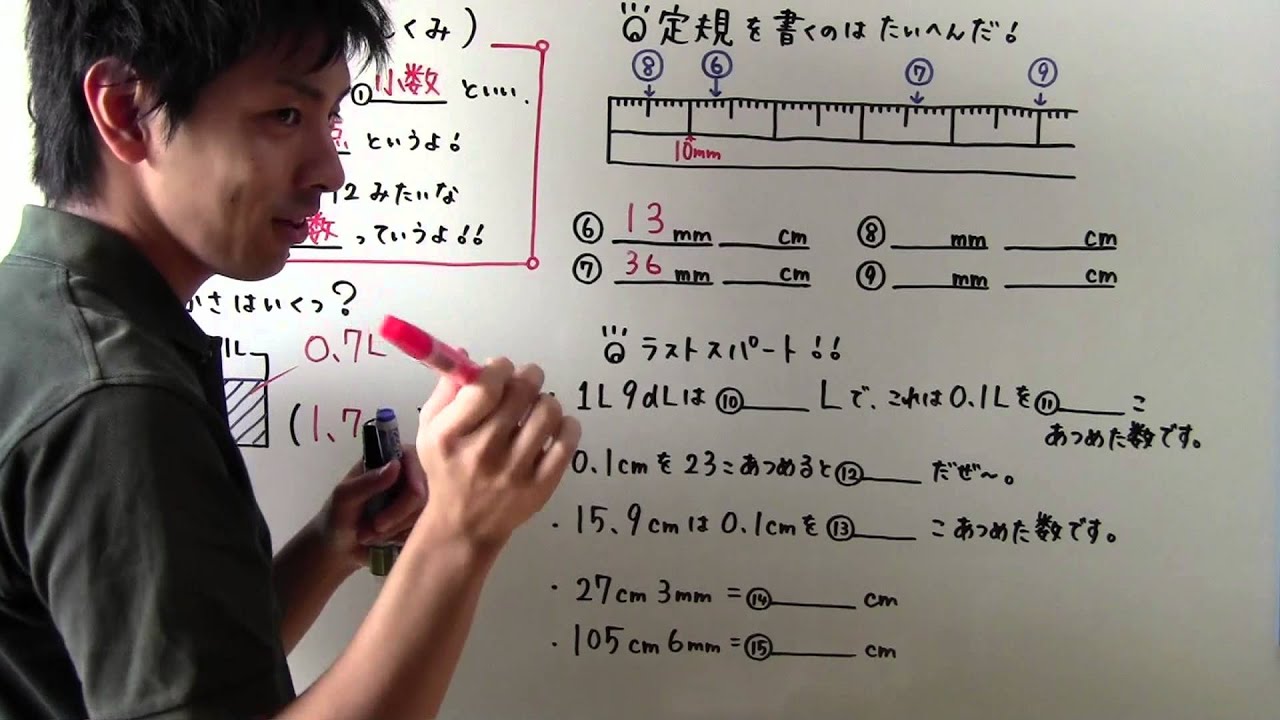 くみ)
① 小数 といい、
点 というよ!
12 みたいな
数 っていうよ!!
かさはいくつ?
1L
0.7L
(1.7
定規を書くのはたいへんだ!
⑧ ⑥ ⑦ ⑨
10mm
⑥ 13 mm cm ⑧ mm cm
⑦ 36 mm cm ⑨ mm cm
ラストスパート!!
・1L9dLは⑩ Lで、これは0.1Lを⑪ こ
あつめた数です。
0.1cmを23こあつめると⑫ だぜ〜。
・15.9cmは0.1cmを⑬ こあつめた数です。
・27cm3mm=⑭ cm
・105cm6mm=⑮ cm